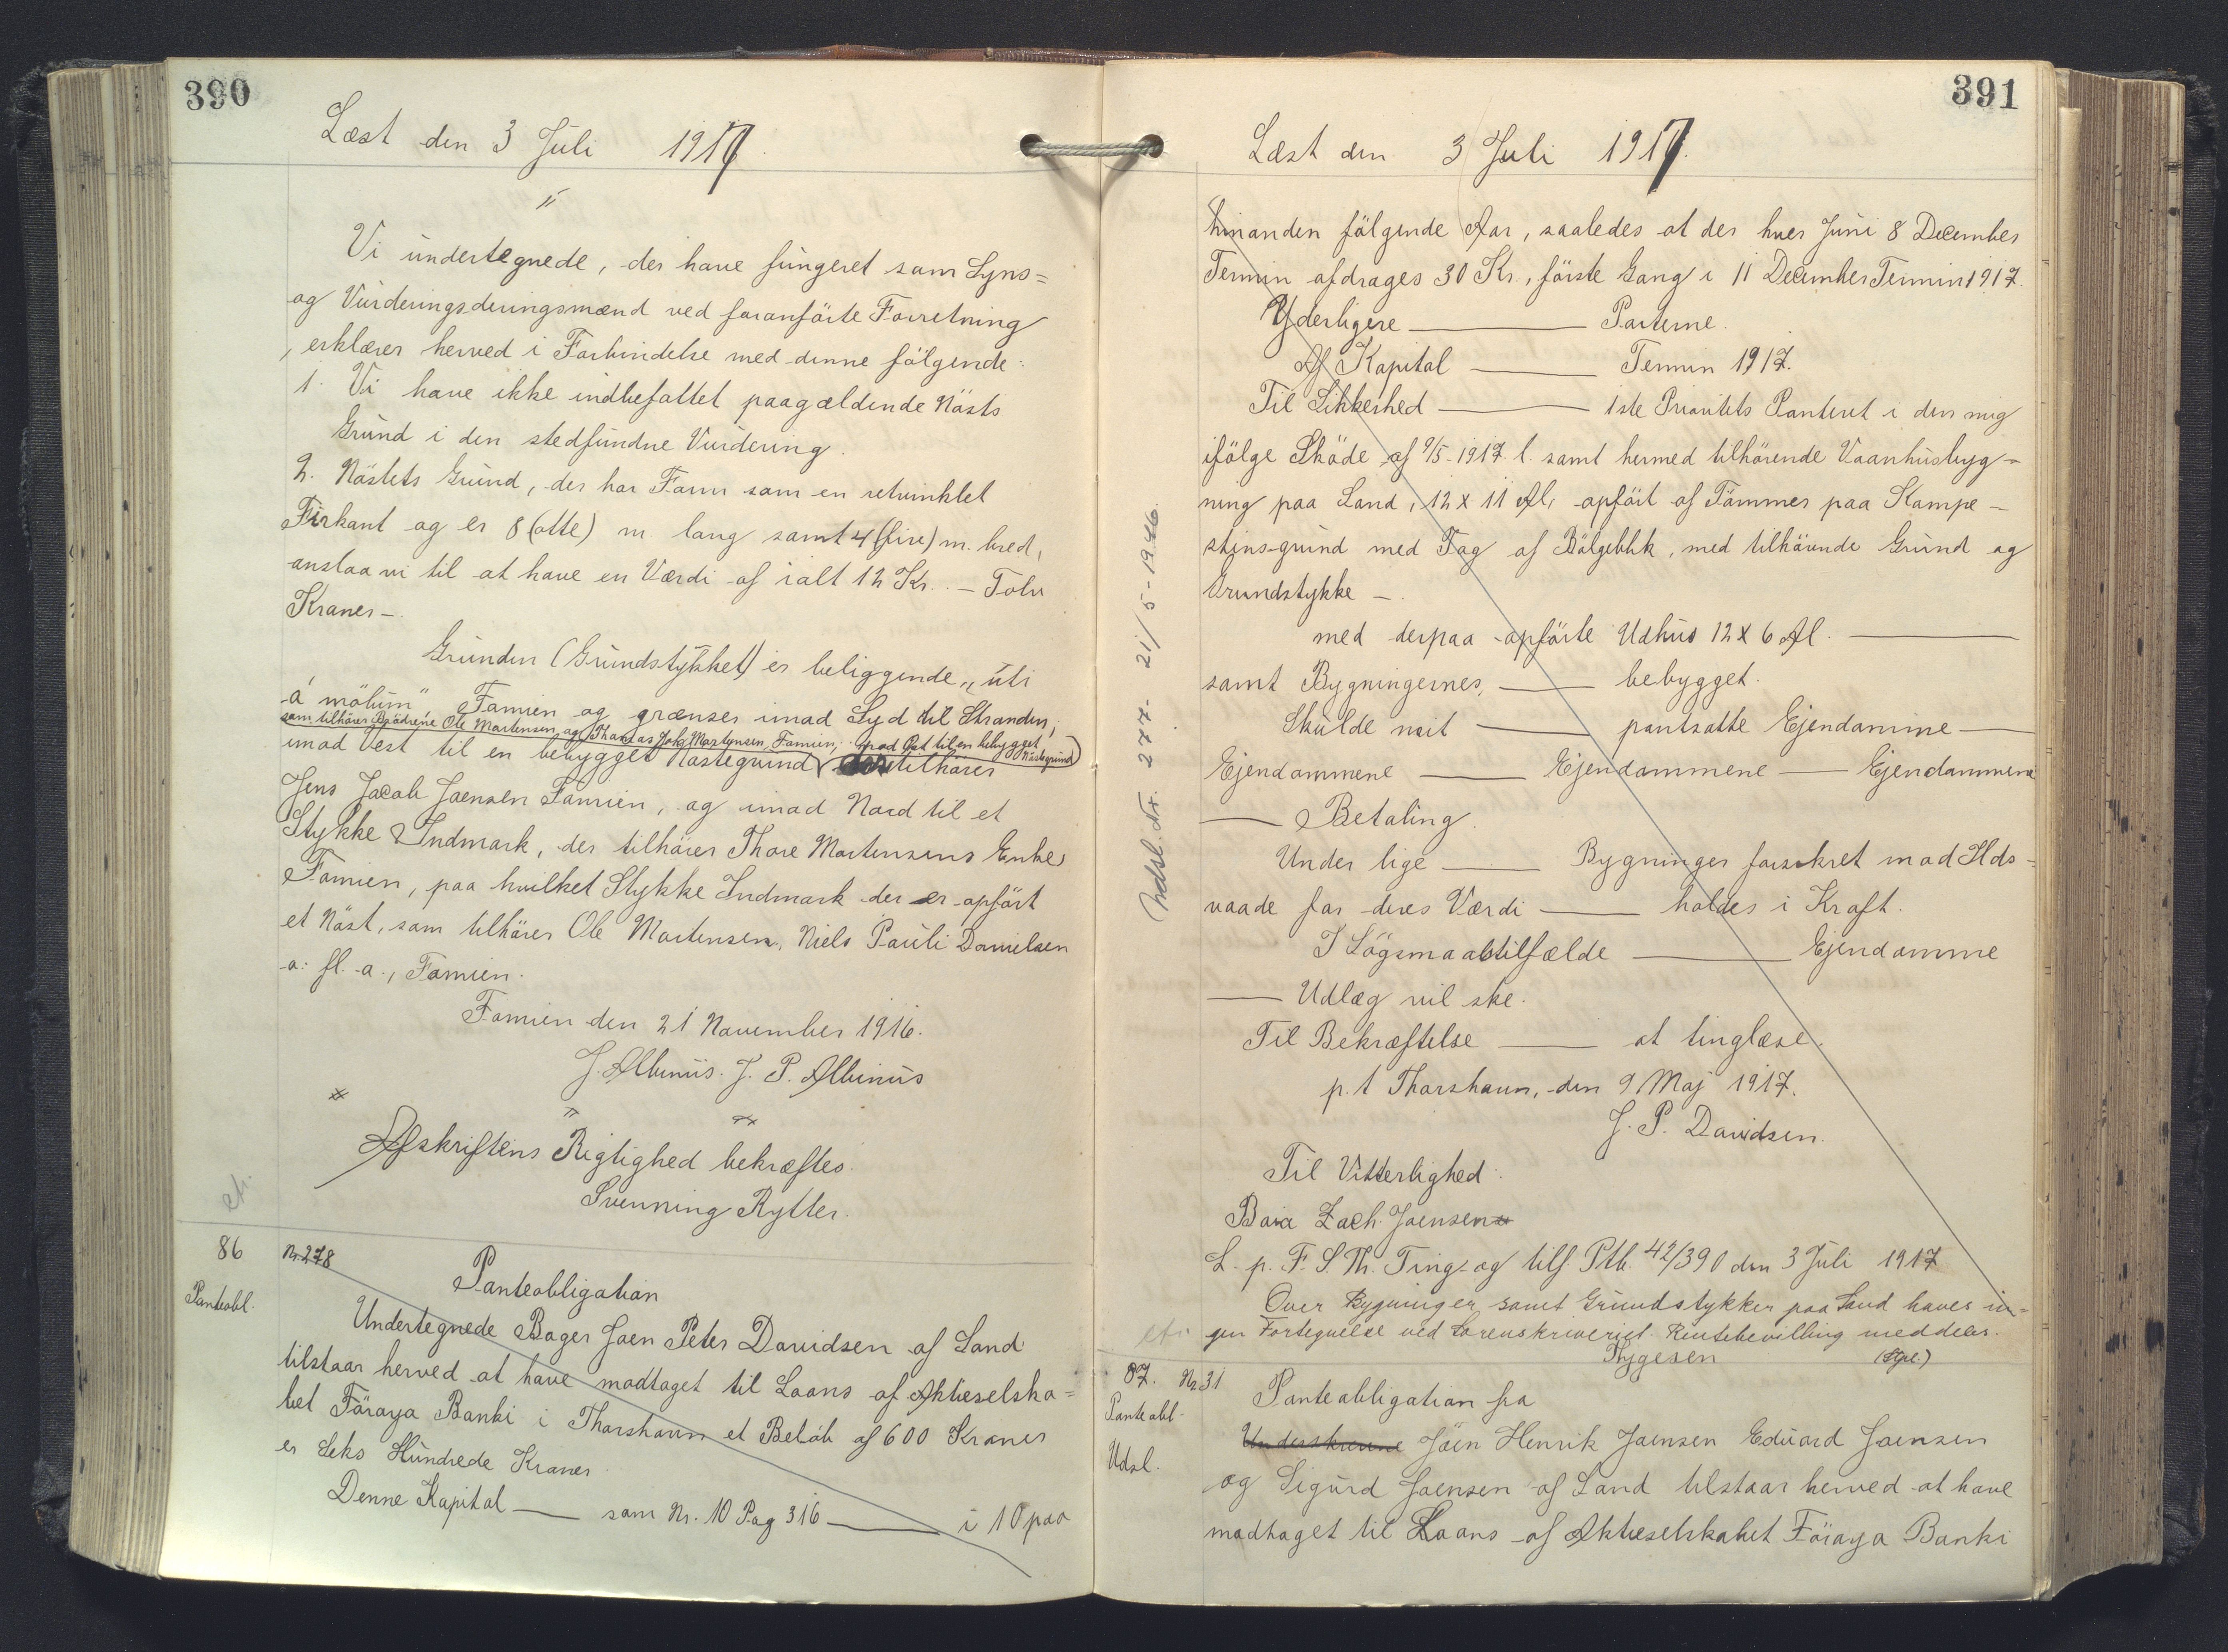 390
Læst den 3 Juli 1917.
"
Vi undertegnede, der have fungeret som Syns=
og Vurderingsderingsmænd ved foranförte Forretning
, erklærer herved i Forbindelse med denne fölgende:
1. Vi have ikke indbefattet paagældende Nösts
Grund i den stedfundne Vurdering.
2. Nöstets Grund, der har Form som en retvinklet
Firkant og er 8 (otte) m lang samt 4 (fire) m. bred,
anslaa vi til at have en Værdi af ialt 12 Kr. – Tolv
Kroner –.
Grunden (Grundstykket) er beliggende „úti
á mölum" Famien og grænser imod Syd til Stranden,
som tilhörer Brödrene Ole Mortensen og Thomas Joh. Martensen, Famien, mod Öst til en bebygget Nöstegrund
imod Vest til en bebygget Nöstegrund tilhörer
Jens Jacob Joensen Famien, og imod Nord til et
Stykke Indmark, der tilhörer Thore Mortensens Enke
Famien, paa hvilket Stykke Indmark der er opfört
et Nöst, som tilhörer Ole Mortensen, Niels Pauli Danielsen
o. fl. a., Famien.
Famien den 21 November 1916.
J. Albinus. J. P. Albinus
Afskriftens Rigtighed bekræftes.
Svenning Rytter.
86 Nr. 278
Panteobl.
Panteobligation
Undertegnede Bager Joen Peter Davidsen af Sand
tilstaar herved at have modtaget til Laans af Aktieselska=
bet Föroya Banki i Thorshavn et Belöb af 600 Kroner
er Seks Hundrede Kroner.
Denne Kapital — som Nr. 10 Pag 316 — i 10 paa
391
Læst den 3 Juli 1917.
hinanden fölgende Aar, saaledes at der hver Juni & December
Termin afdrages 30 Kr., förste Gang i 11 December Termin 1917.
Yderligere — Parterne.
Af Kapital — Termin 1917.
Til Sikkerhed — 1ste Prioritets Panteret i den mig
ifölge Sköde af 9/5-1917 l. samt hermed tilhörende Vaanhusbyg=
ning paa Sand, 12 x 11 Al, opfört af Tömmer paa Kampe-
stens-grund med Tag af Bölgeblik, med tilhörende Grund og
Grundstykke –.
med derpaa opförte Udhus 12 x 6 Al. —
samt Bygningernes, — bebygget.
Skulde noit — pantsatte Ejendomme —
Ejendommene — Ejendommene — Ejendommene
— Betaling.
Under lige — Bygninger forsikret mod Ilds=
vaade for deres Værdi — holdes i Kraft.
I Sögsmaalstilfælde — Ejendomme
— Udlæg vil ske.
Til Bekræftelse — at tinglæse.
p. t Thorshavn, den 9 Maj 1917.
J. P. Davidsen.
Til Vitterlighed:
Zach. Joensen
L. p. F. S. Th. Ting og tilf. Ptb. 42/390 den 3 Juli 1917
Over Bygninger samt Grundstykker paa Sand haves in=
gen Fortegnelse ved Sorenskriveriet. Rentebevilling meddeles.
Thygesen (Stpl.)
Indsl. Nr. 277- 21/5-1946
87. Nr. 31
Panteobl.
Udsl.
Panteobligation fra
Joen Henrik Joensen Eduard Joensen
og Sigurd Joensen af Sand tilstaar herved at have
modtaget til Laans af Aktieselskabet Föroya Banki